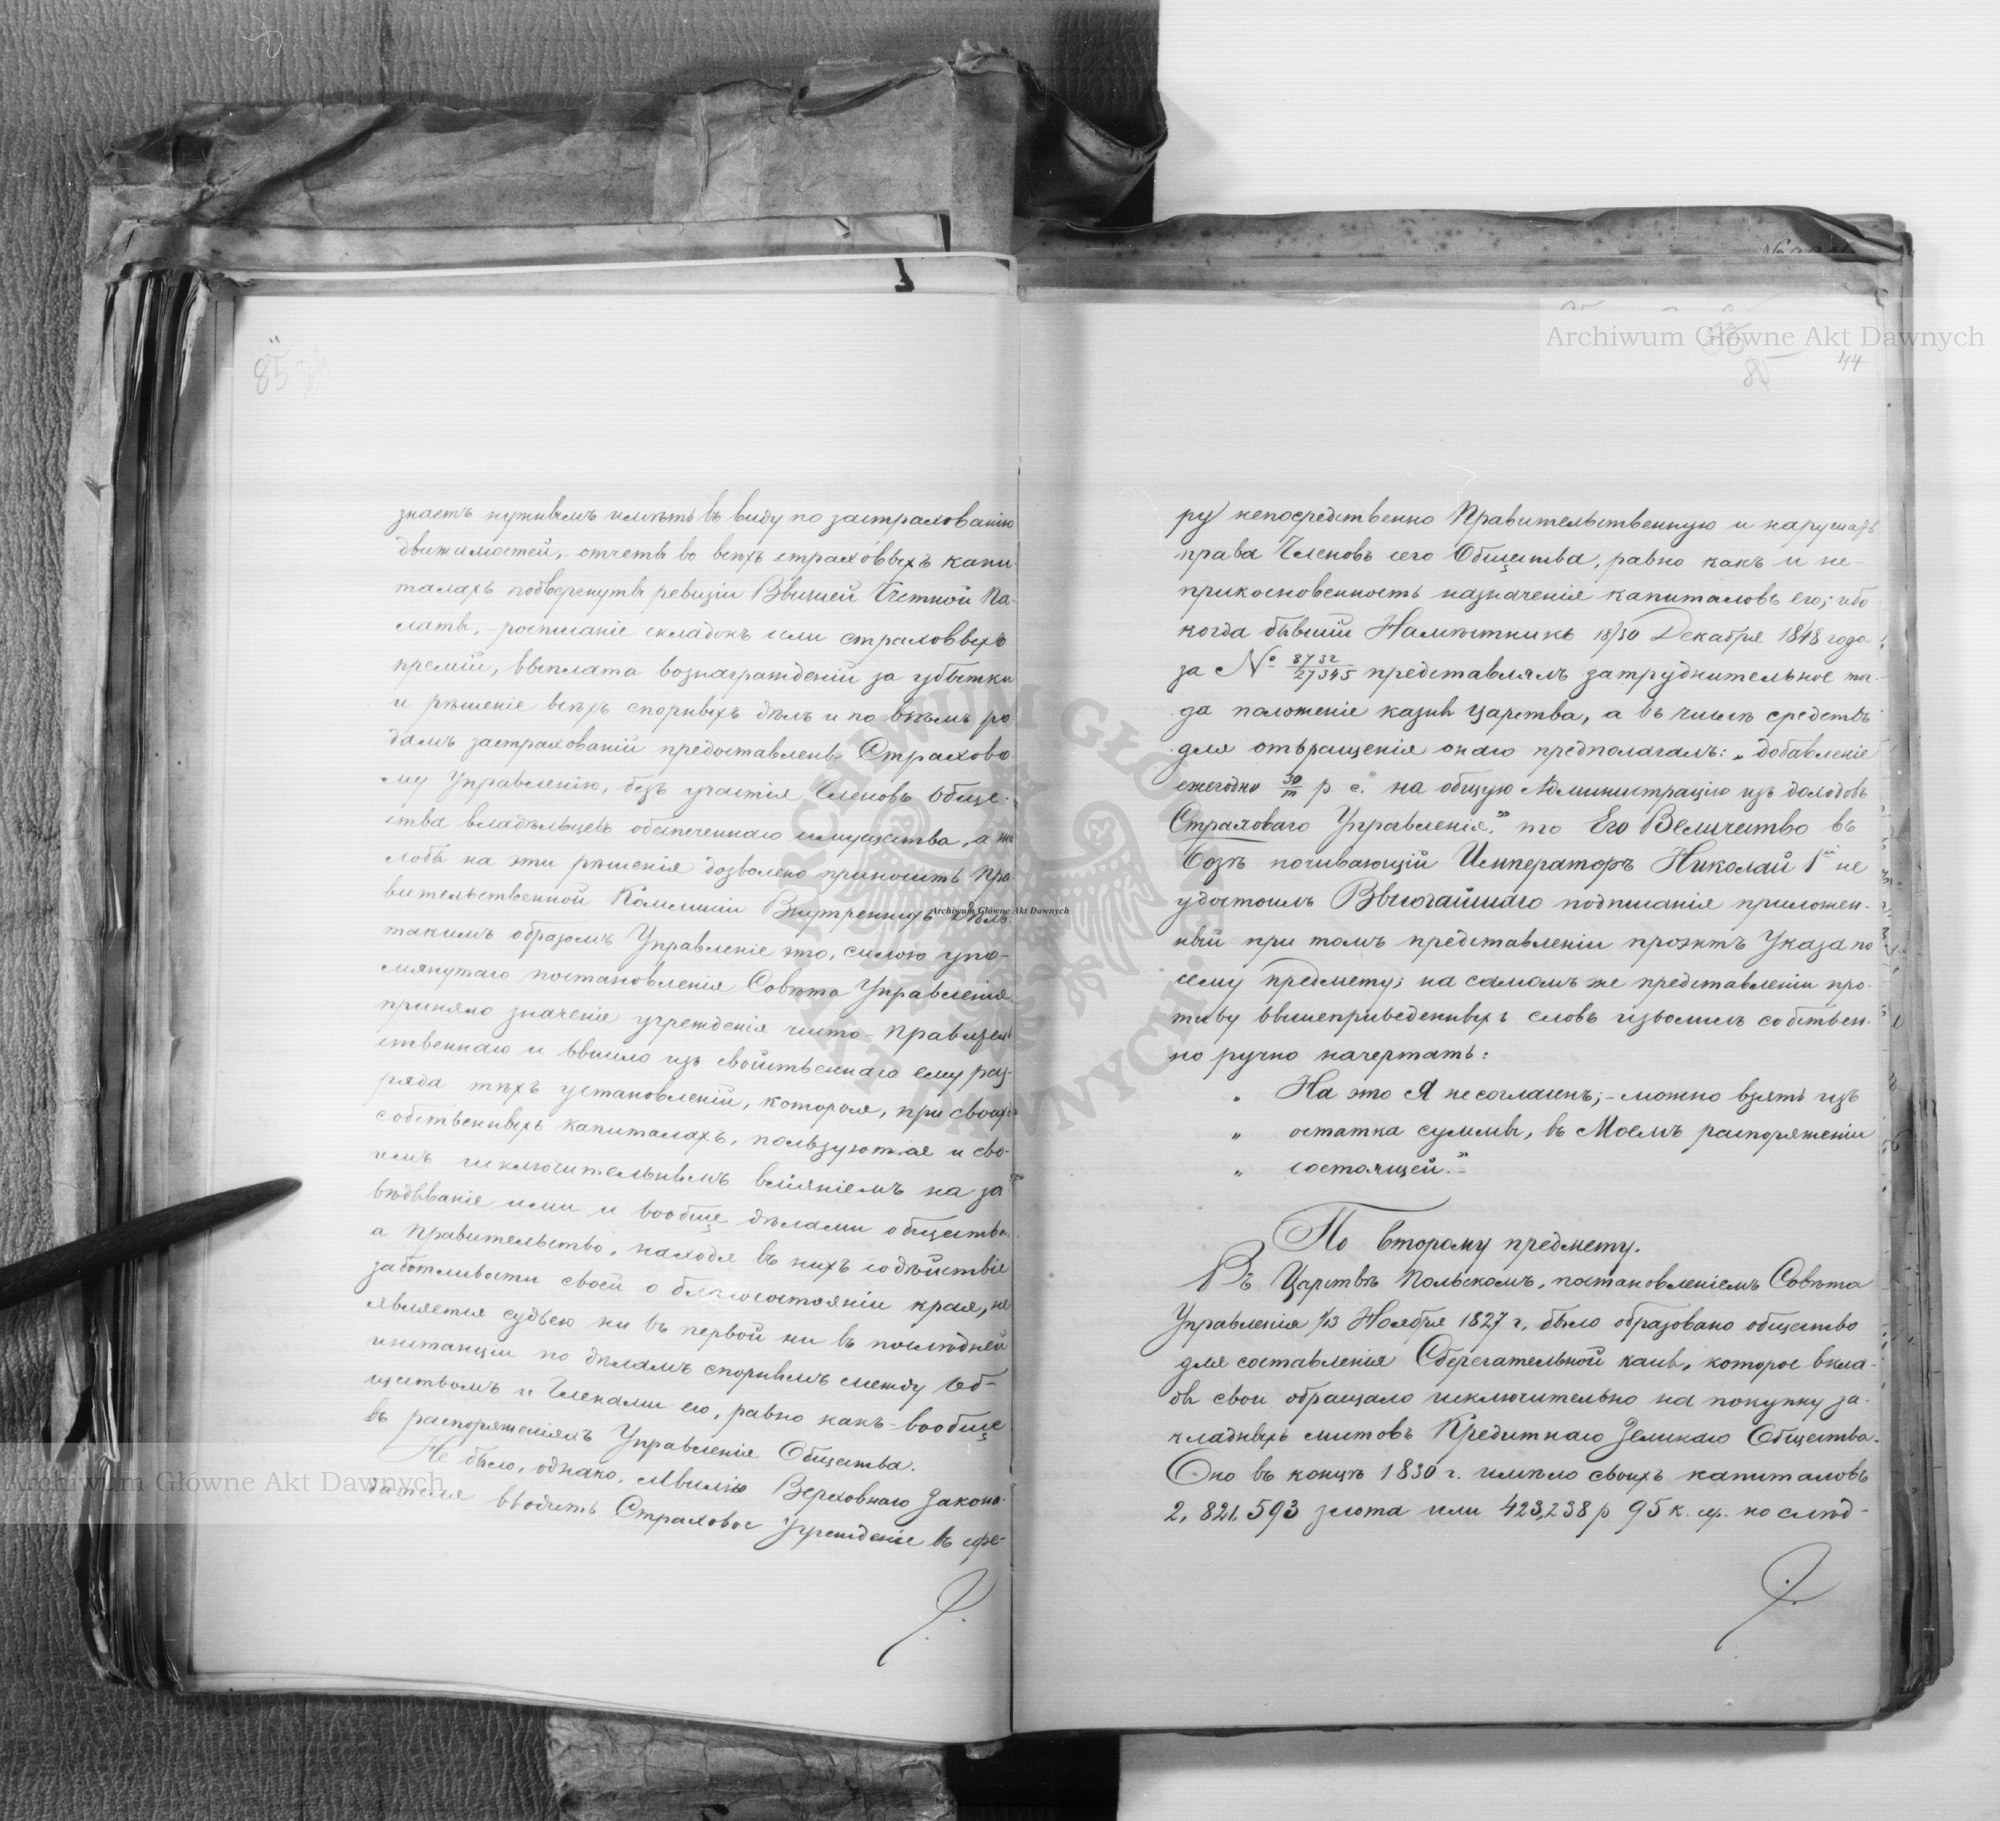 85
знаетъ нужнымъ имѣть въ виду по застрахованію
движимостей, отчеты во всѣхъ страховыхъ капи-
талахъ подвергнуты ревизіи Высшей Счетной Па-
латы, росписаніе складокъ или страховыхъ
премій, выплата вознагражденій за убытки
и рѣшеніе всѣхъ спорныхъ дѣлъ и по всѣмъ ро
дамъ застрахованій предоставлены Страхово-
му Управленію, безъ участія Членовъ Обще-
ства владѣльцевъ обезпеченнаго имущества, а жа
лобы на эти рѣшенія дозволено приносить Пра
вительственной Коммисіи Внутреннихъ Дѣлъ.
такимъ образомъ Управленіе это, силою упо-
мянутаго постановленія Совѣта Управленія,
приняло значеніе учрежденія чисто-Правитель
ственнаго и вышло изъ свойственнаго ему раз-
ряда тѣхъ установленій, которыя, при своихъ
собственныхъ капиталахъ, пользуются и сво-
имъ исключительнымъ вліяніемъ на за-
вѣдываніе ими и вообще дѣлами общества,
а Правительство, находя въ нихъ содѣйствіе
заботливости своей о благосостояніи края, не
является судьею ни въ первой ни въ послѣдней
инстанціи по дѣламъ спорнымъ между Об-
ществомъ и Членами его, равно какъ-вообще
въ распоряженіяхъ Управленія Общества.
Не было, однако, мыслію Верховнаго Законо-
дателя вводить Страховое Учрежденіе въ сфе-
44
85
ру непосредственно Правительственную и нарушать
права Членовъ сего Общества, равно какъ и не-
прикосновенность назначенія капиталовъ его; ибо
когда бывшій Намѣстникъ 18/30 Декабря 1848 года
за № 8732/27345 представлялъ затруднительное тог-
да положеніе казны Царства, а въ числѣ средствъ
для отвращенія онаго предполагалъ: „добавленіе
ежегодно 30/m р. с. на общую Администрацію изъ доходовъ
Страховаго Управленія," то Его Величество въ
Бозѣ почивающій Императоръ Николай 1й не
удостоилъ Высочайшаго подписанія приложен-
ный при томъ представленіи проэктъ Указа по
сему предмету; на самомъ же представленіи про-
тиву вышеприведенныхъ словъ изволилъ собствен-
но ручно начертать:
„ На это Я не согласенъ; - можно взять изъ
„ остатка суммы, въ Моемъ распоряженіи
„ состоящей."
По второму предмету.
Въ Царствѣ Польскомъ, постановленіемъ Совѣта
Управленія 1/13 Ноября 1827 г, было образовано общество
для составленія Сберегательной касы, которое вкла-
ды свои обращало исключительно на покупку за-
кладныхъ листовъ Кредитнаго Земскаго Общества.
Оно въ концѣ 1830 г. имѣло своихъ капиталовъ
2,821,593 злота или 423,238 р 95 к. ср. но слѣд-
Archiwum Główne Akt Dawnych
Archiwum Główne Akt Dawnych
Archiwum Główne Akt Dawnych